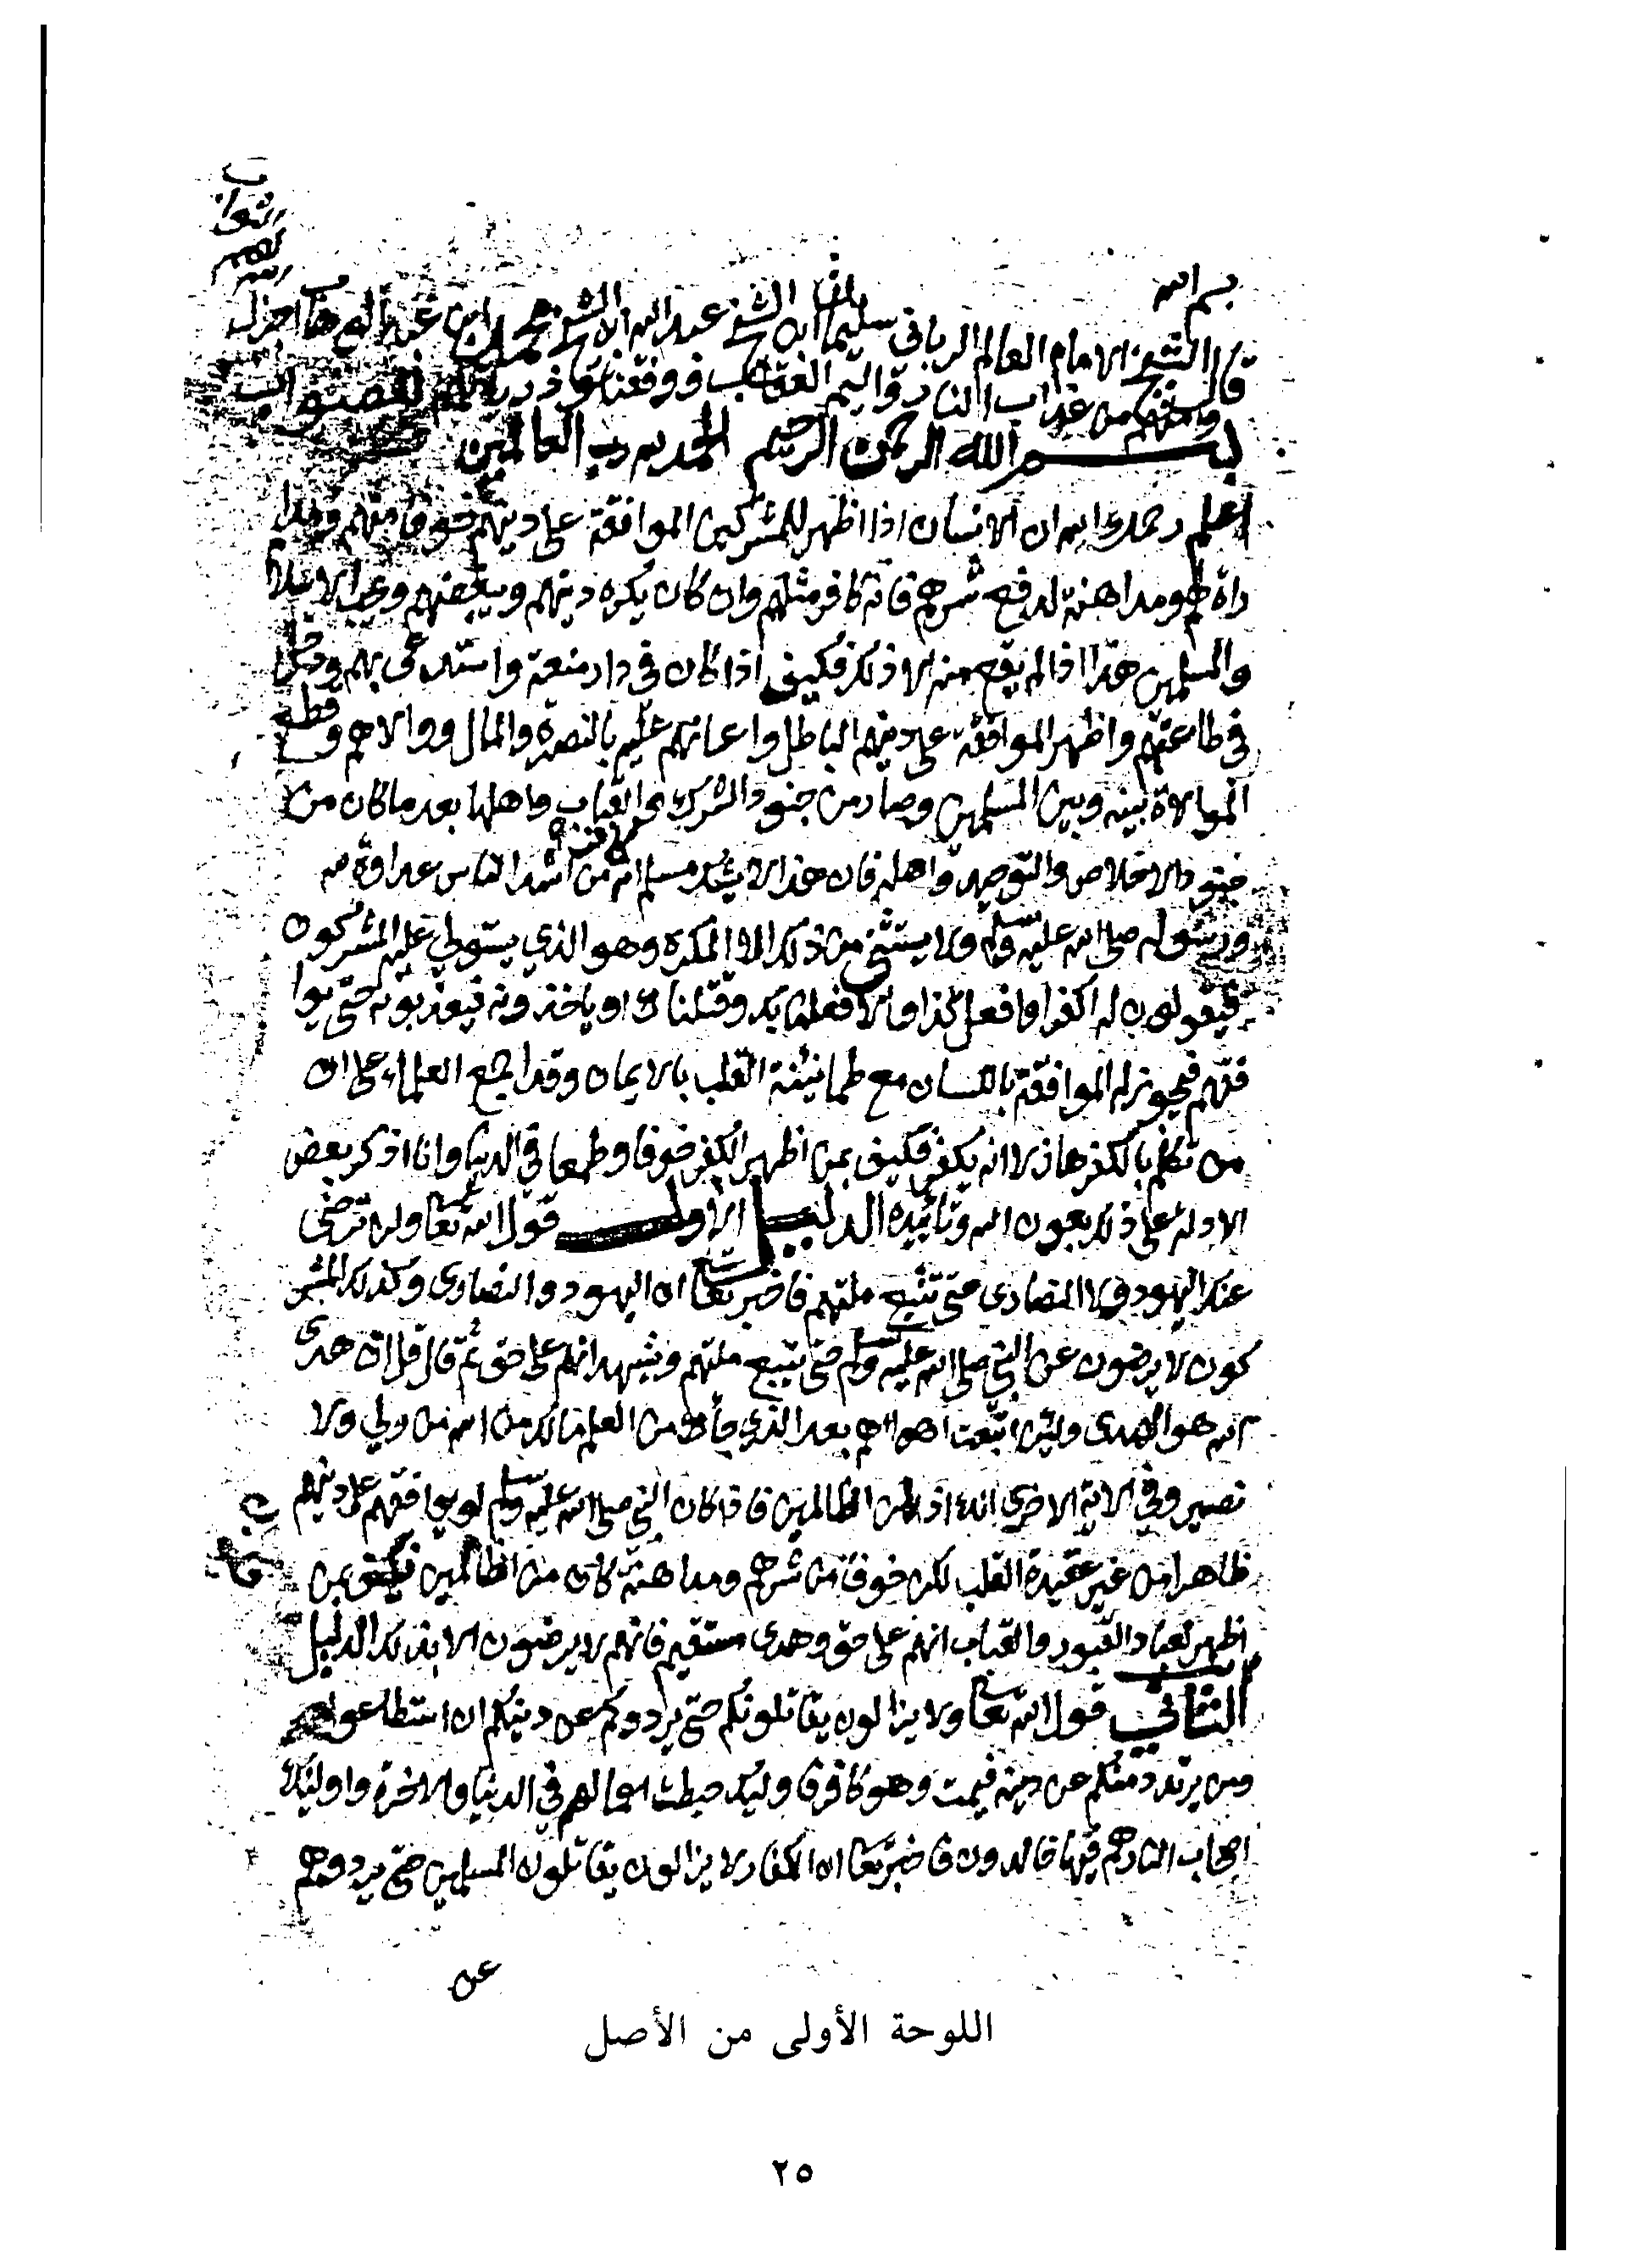 بسم الله
قال الشيخ الامام العالم الرباني سليمان ابن الشيخ عبد الله ابن الشيخ محمد ابن عبد الوهاب اجزل
الثواب
من عذاب النار واليم العقاب ووفقنا
بسم الله الرحمن الرحيم الحمد لله رب العالمين
اعلم رحمك الله ان الانسان اذا اظهر للمشركين الموافقة على دينهم خوفا منهم ومدا
راة لهم ومداهنة لدفع شرهم فانه كافر مثلهم وان كان يكره دينهم ويبغضهم ويحب الاسلام
والمسلمين هذا اذا لم يقع منه الا ذلك فكيف اذا كان في دار منعة واستدعى بهم ودخل
في طاعتهم واظهر الموافقة على دينهم الباطل واعانهم عليه بالنصرة والمال ووالاهم وقطع
الموالاة بينه وبين المسلمين وصار من جنود الشرك والقباب واهلها بعد ما كان من
جنود الاخلاص والتوحيد واهله فان هذا لا يشك مسلم انه كافر من اشد الناس عداوة لله
ورسوله صلى الله عليه وسلم ولا يستثنى من ذلك الا المكره وهو الذي يستولي عليه المشركون
فيقولون له اكفر او افعل كذا والا فعلنا بك وقتلناك او ياخذونه فيعذبونه حتى يوا
فقهم فيجوز له الموافقة باللسان مع طمانينة القلب بالايمان وقد اجمع العلماء على ان
من تكلم بالكفر هازلا انه يكفر فكيف بمن اظهر الكفر خوفا وطمعا في الدنيا وانا اذكر بعض
الادلة على ذلك بعون الله وتائيده الدليل الاول قول الله تعالى ولن ترضى
عنك اليهود ولا النصارى حتى تتبع ملتهم فاخبر تعالى ان اليهود والنصارى وكذلك المشر
كون لا يرضون عن النبي صلى الله عليه وسلم حتى يتبع ملتهم ويشهد انهم على حق ثم قال قل ان هدى
الله هو الهدى ولئن اتبعت اهواءهم بعد الذي جاءك من العلم مالك من الله من ولي ولا
نصير وفي الاية الاخرى انك اذا لمن الظالمين فاذا كان النبي صلى الله عليه وسلم لو يوافقهم على دينهم
ظاهرا من غير عقيدة القلب لكن خوفا من شرهم ومداهنة كان من الظالمين فكيف بمن
اظهر لعباد القبور والقباب انهم على حق وهدى مستقيم فانهم لا يرضون الا بذلك الدليل
الثاني قول الله تعالى ولا يزالون يقاتلونكم حتى يردوكم عن دينكم ان استطاعوا
ومن يرتدد منكم عن دينه فيمت وهو كافر فاوليك حبطت اعمالهم في الدنيا والاخرة واوليك
اصحاب النار هم فيها خالدون فاخبر تعالى ان الكفار لا يزالون يقاتلون المسلمين حتى يردوهم
عن
اللوحة الأولى من الأصل
٢٥